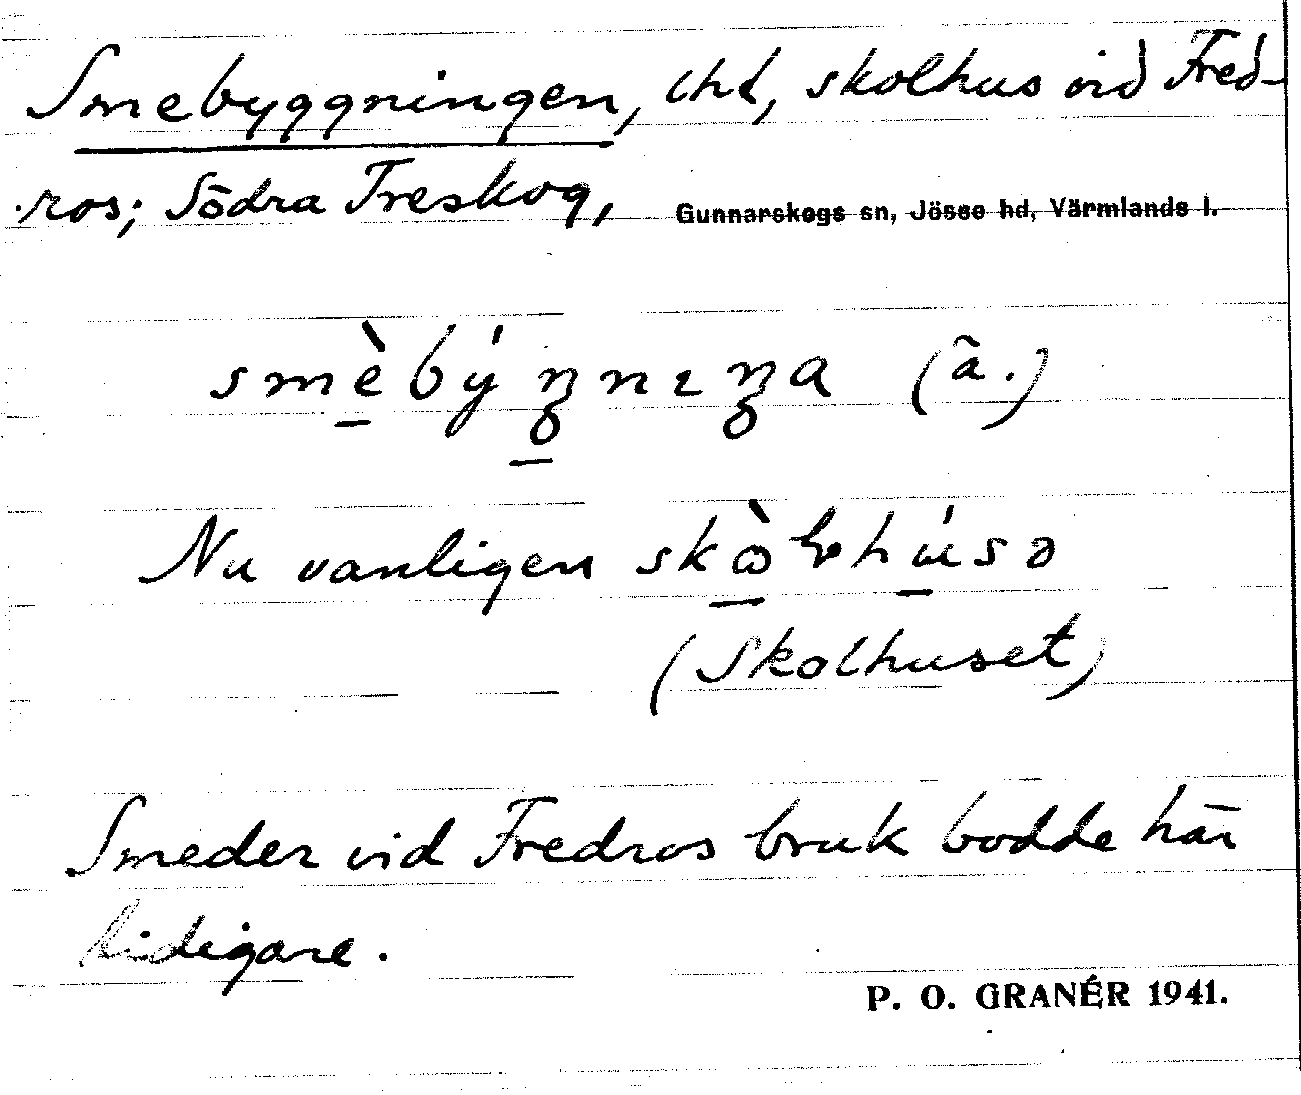 Smebyggningen, lht, skolhus vid Fred-
ros; Södra Treskog, Gunnarskogs sn, Jösse hd, Värmlands l.
smèbýŋnıŋa (ä.)
Nu vanligen skòlhúsə
(Skolhuset)
Smeder vid Fredros bruk bodde här
tidigare.
P. O. GRANÉR 1941.